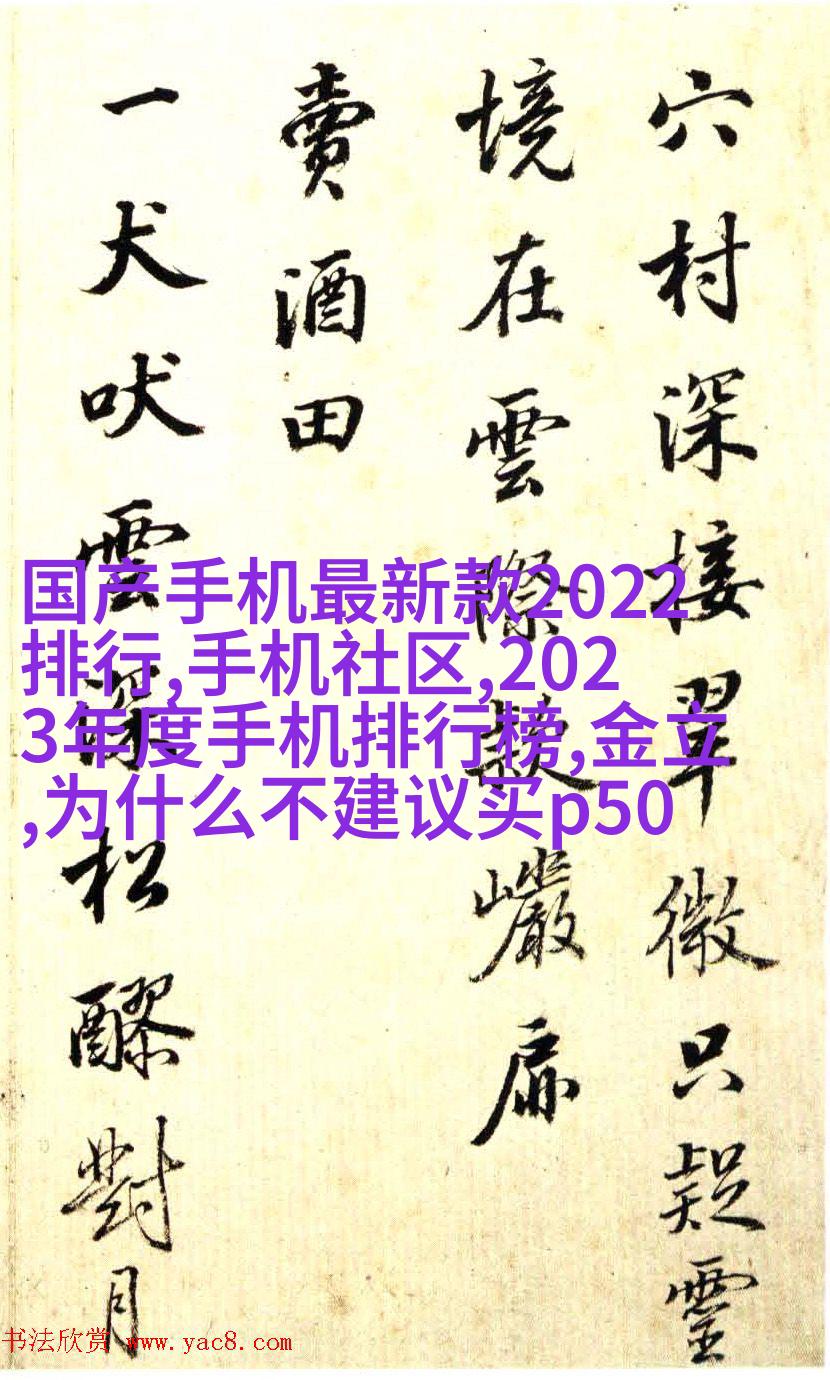 穴村深接翠微只疑靈
境在雲際敞巖扉
賣酒田
一犬吠雲深松醪對月
国产手机最新款2022
排行,手机社区,202
3年度手机排行榜,金立
,为什么不建议买p50
书法欣赏 www.yac8.com